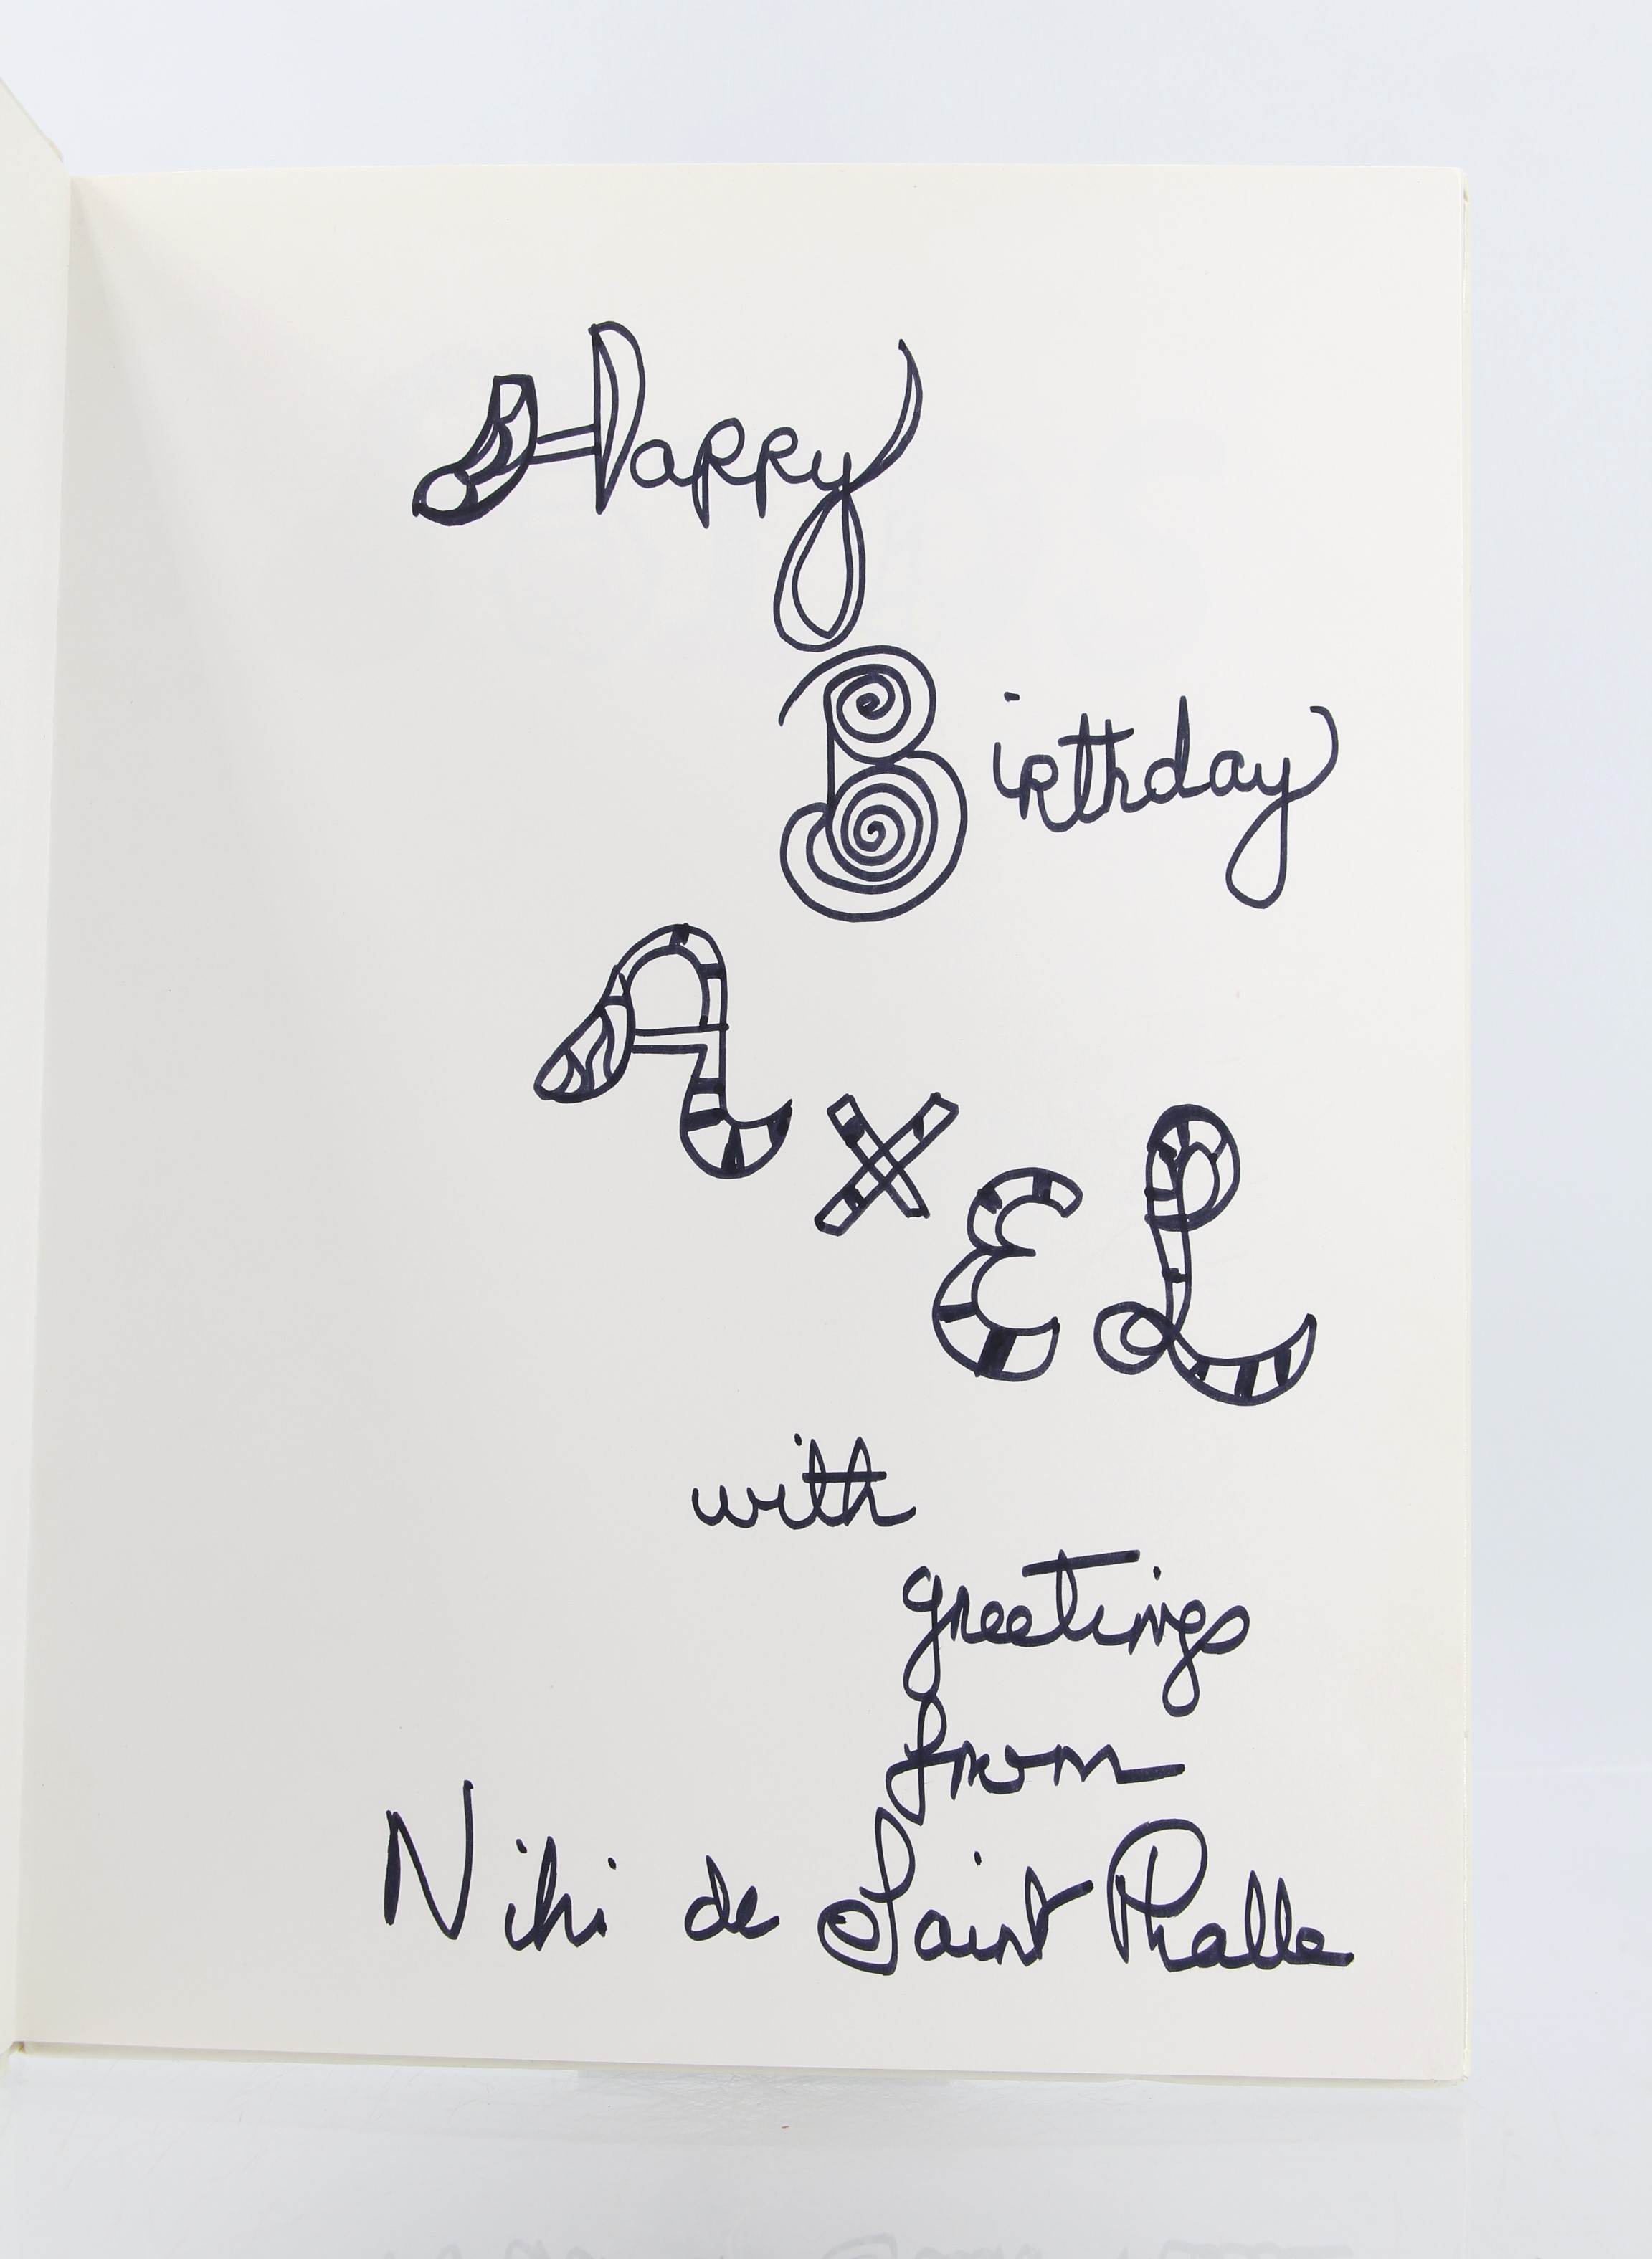 Happy
Birthday
AxEL
with
greetings
from
Niki de Saint Phalle